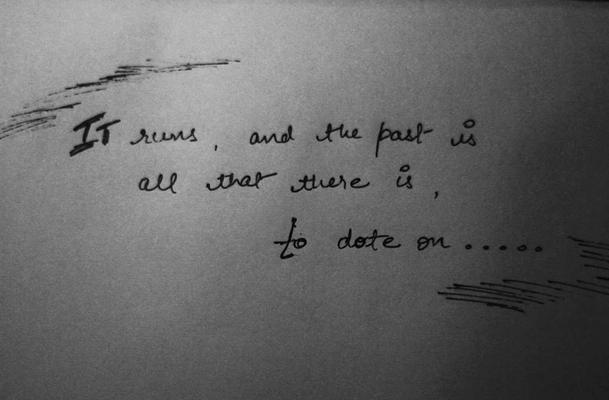 IT runs, and the past is
all that there is,
to dote on.....